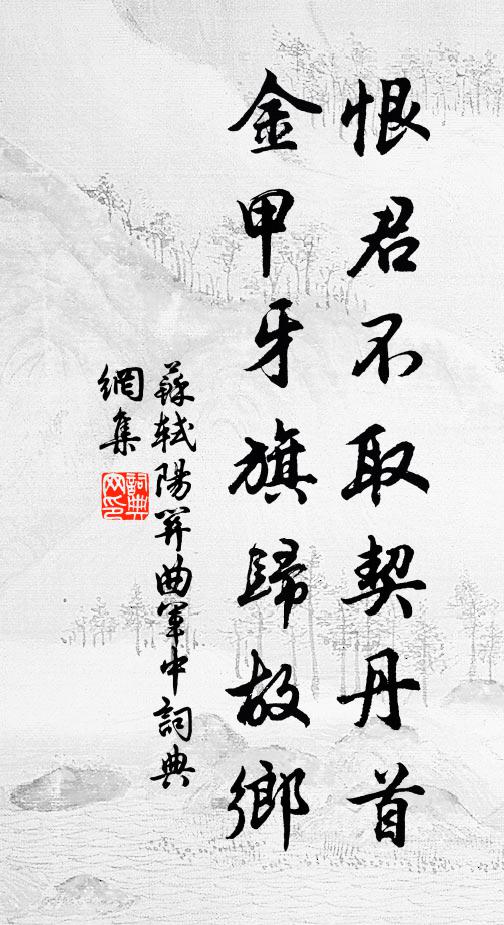 恨君不取契丹首
金甲牙旗歸故鄉
蘇軾陽關曲軍中詞典
網集
詞典
网印